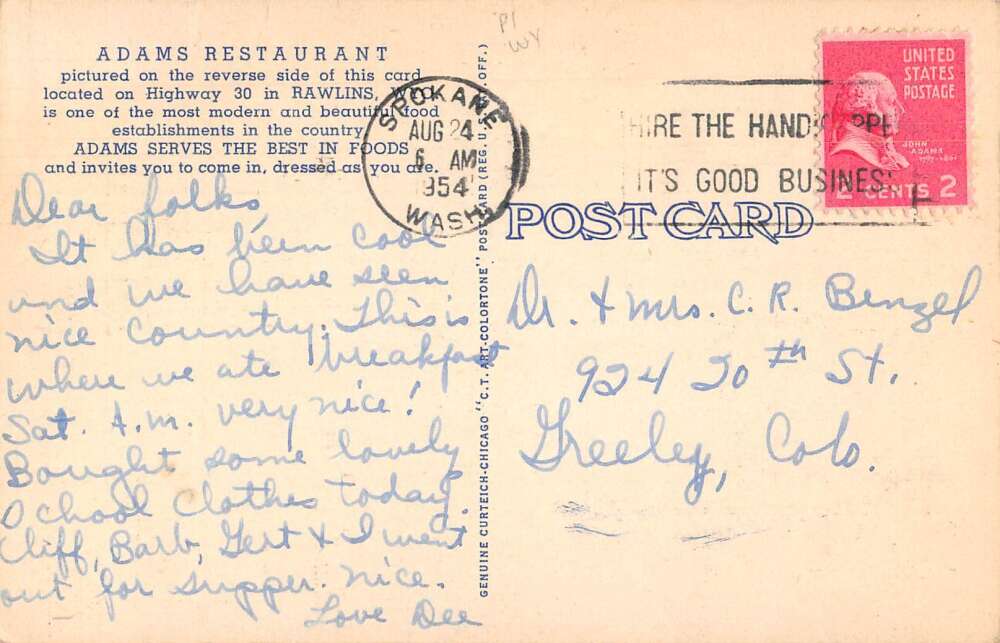 PI
WY
ADAMS RESTAURANT
pictured on the reverse side of this card
located on Highway 30 in RAWLINS, WYO.
is one of the most modern and beautiful food
establishments in the country
ADAMS SERVES THE BEST IN FOODS
and invites you to come in, dressed as you are.
SPOKANE
AUG 24
6 AM
1954
WASH.
HIRE THE HANDICAPPE
IT'S GOOD BUSINES
UNITED
STATES
POSTAGE
JOHN
ADAMS
1797-1801
2 CENTS 2
POST CARD
GENUINE CURTEICH-CHICAGO "C.T. ART-COLORTONE" POST CARD (REG. U.S. PAT. OFF.)
Dear folks,
It has been cool
and we have seen
nice country. This is
where we ate breakfast
Sat. A.M. very nice!
Bought some lovely
school clothes today.
Cliff, Barb, Gert & I went
out for supper. nice.
Love Dee
Dr. & Mrs. C. R. Benzel
924 20th St.
Greeley, Colo.